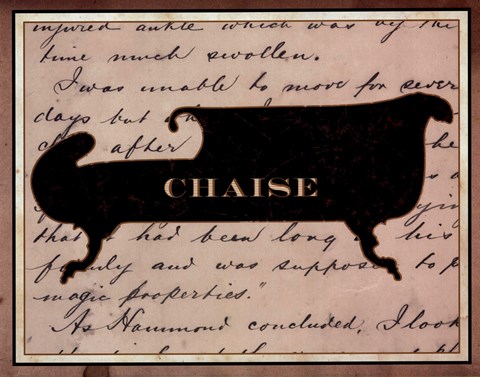 injured ankle which was by the
time much swollen.
I was unable to move for sever
days but
after
CHAISE
that had been long his
and was suppose to
magic properties."
As Hammond concluded, I look